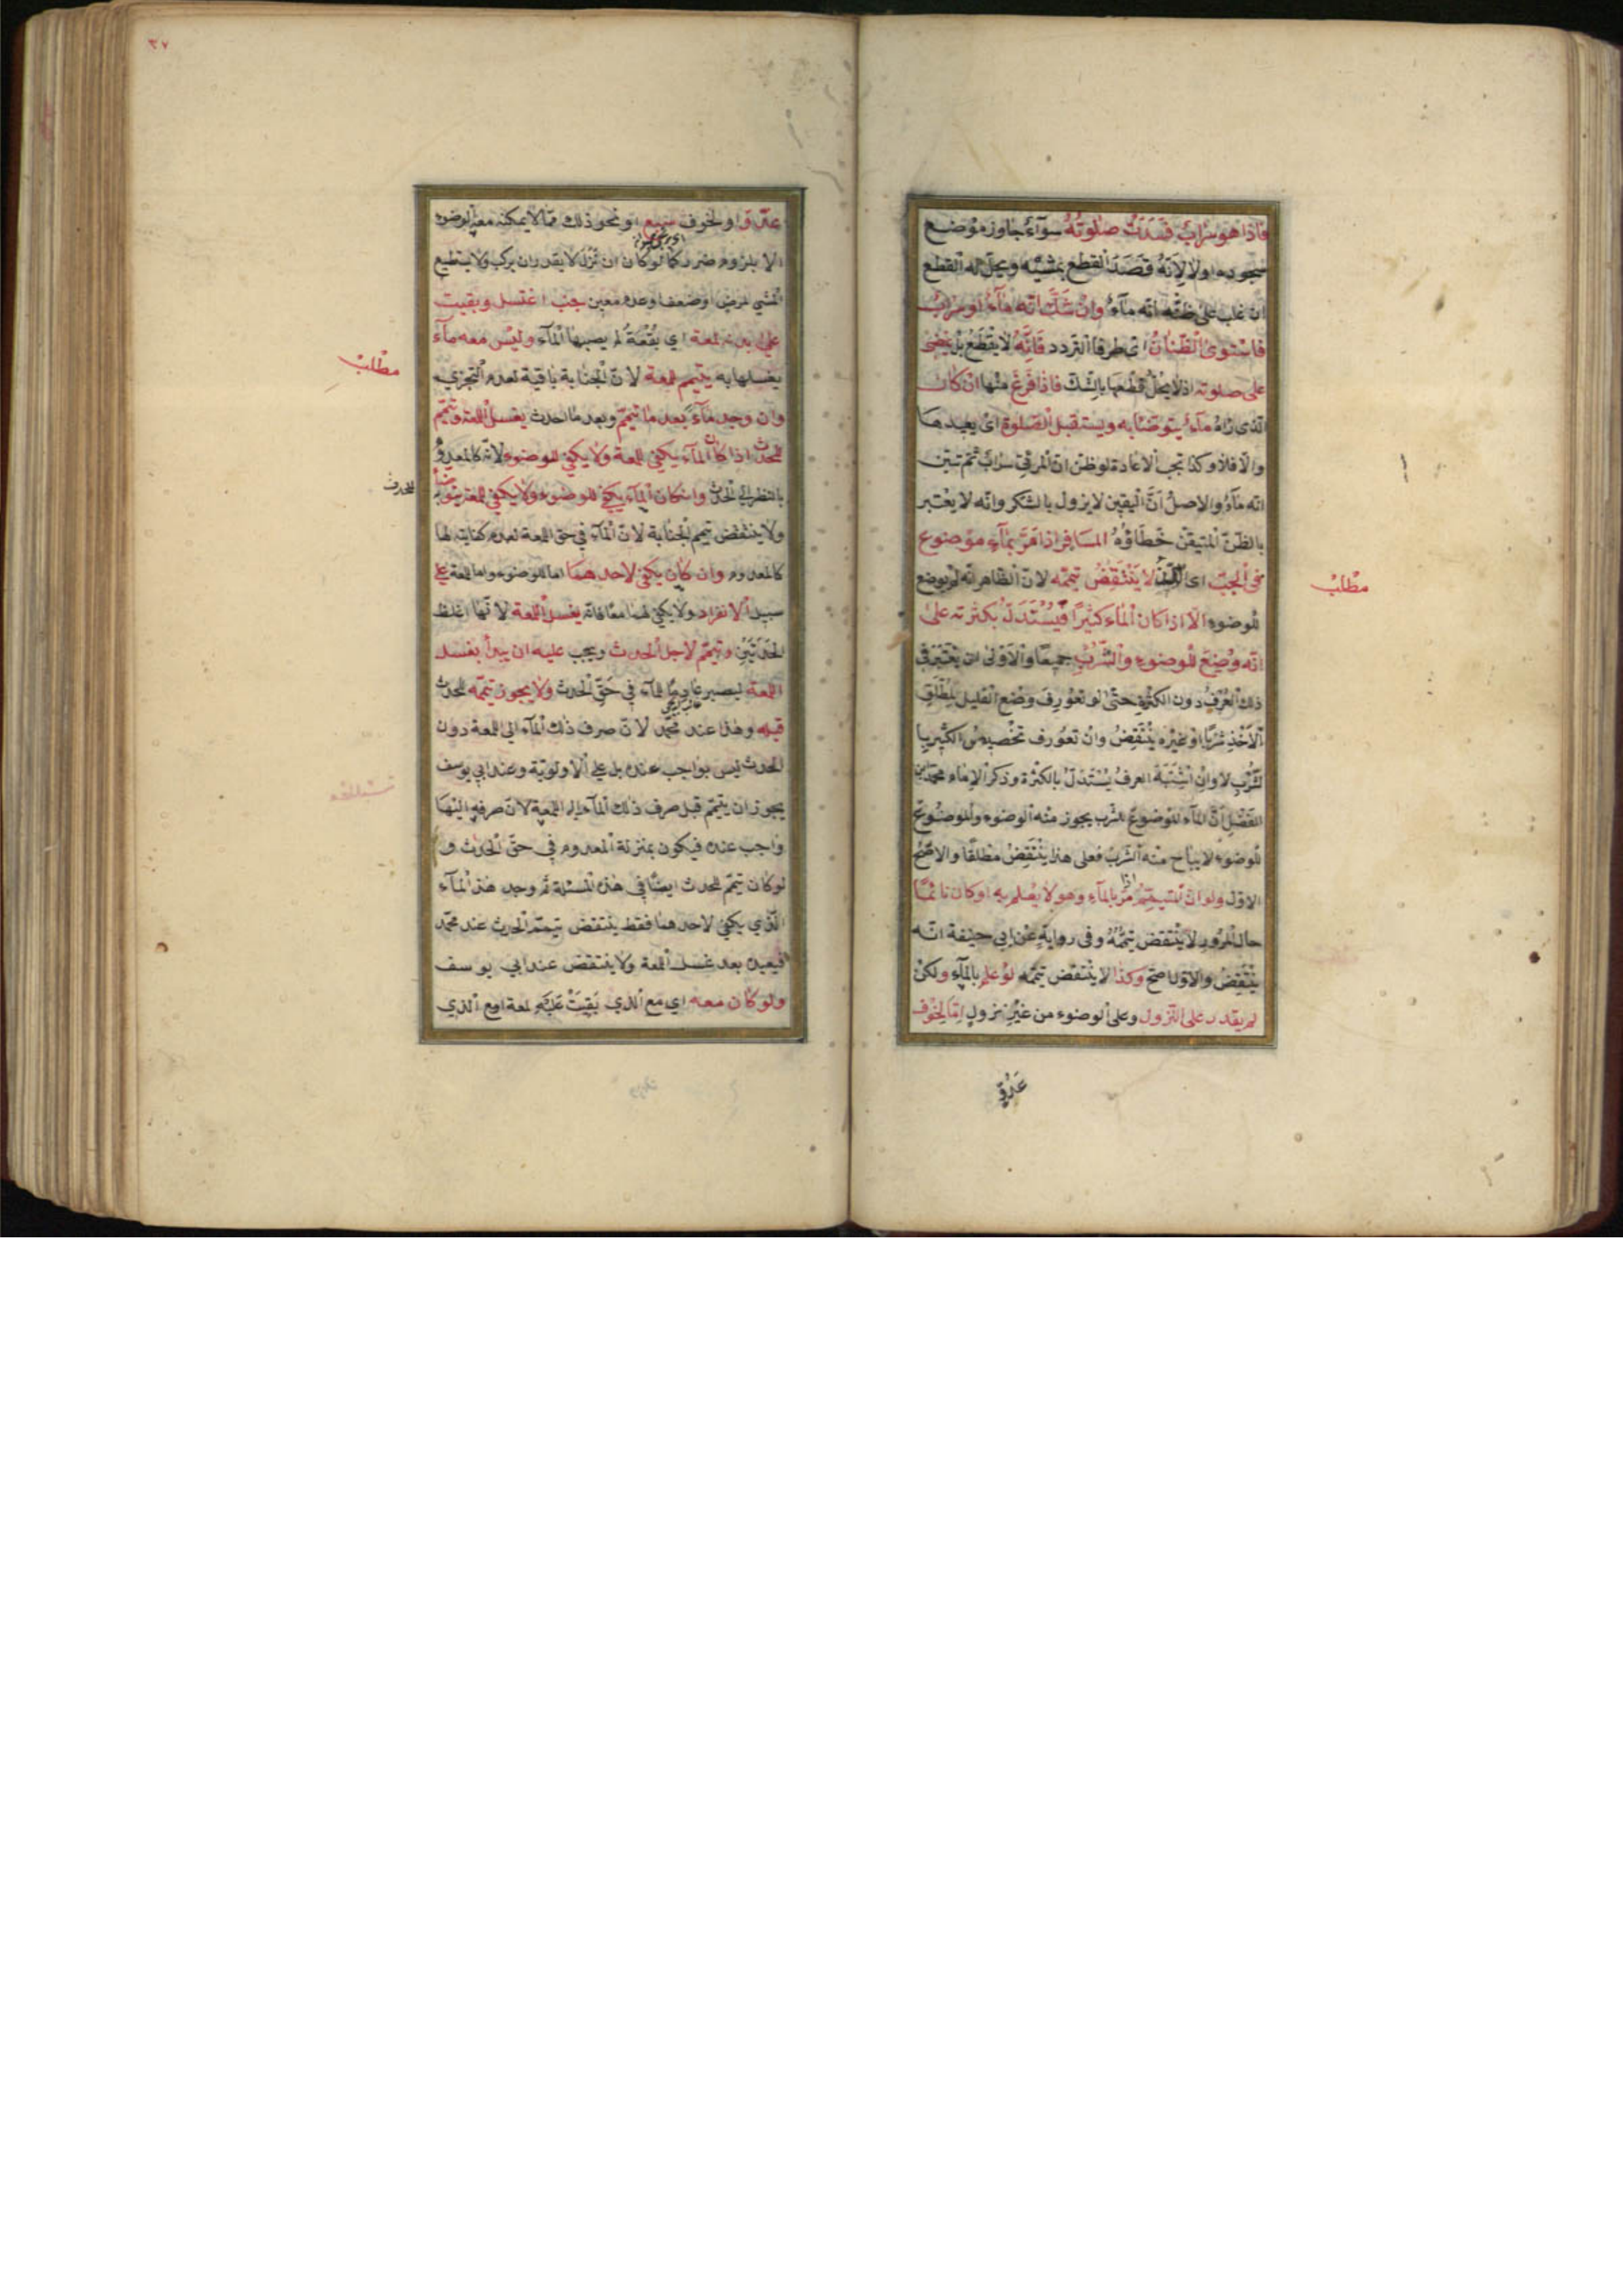 فاذا هو سراب فسدت صلوته سوآء جاوز موضع
سجوده او لا لانه قصد القطع بمشيه ويحل له القطع
ان غلب على ظنه انه مآء وان شك انه مآء او سراب
فاستوى الظنان اى طرفا التردد فانه لا يقطع بل يمضى
على صلوته اذ لا يحل قطعها بالشك فاذا فرغ منها ان كان
الذى رآه مآء يتوضأ به ويستقبل الصلوة اى يعيدها
والا فلا وكذا تجب الاعادة لو ظن ان المرئى سراب ثم تبين
انه مآء والاصل ان اليقين لا يزول بالشك وانه لا يعتبر
بالظن المتيقن خطاؤه المسافر اذا مر بمآء موضوع
فى الجب اى لا ينتقض تيممه لان الظاهر انه لم يوضع
للوضوء الا اذا كان المآء كثيرا فيستدل بكثرته على
انه وضع للوضوء والشرب جميعا والاولى ان يعتبر فى
ذلك العرف دون الكثرة حتى لو تعورف وضع القليل لمطلق
الاخذ شربا او غيره ينتقض وان تعورف تخصيص الكثير با
لشرب لا وان اشتبه العرف يستدل بالكثرة وذكر الامام محمد بن
الفضل ان المآء الموضوع للشرب يجوز منه الوضوء والموضوع
للوضوء لا يباح منه الشرب فعلى هذا ينتقض مطلقا والاصح
الاول ولو ان المتيمم اذا مر بالمآء وهو لا يعلم به او كان نائما
حال المرور لا ينتقض تيممه وفى رواية عن ابى حنيفة انه
ينتقض والاول اصح وكذا لا ينتقض تيممه لو علم بالمآء ولكن
لم يقدر على النزول وعلى الوضوء من غير نزول اما لخوف
عدو
مطلب
٣٧
عدو او لخوف سبع او نحو ذلك مما لا يمكنه معه الوضوء
الا بلزوم ضرر كما لو كان ان نزل لا يقدر ان يركب ولا يستطيع
المشي لمرض او ضعف وعدم معين جنب اغتسل وبقيت
على بدنه لمعة اي بقعة لم يصبها المآء وليس معه مآء
يغسلها به يتيمم للمعة لان الجنابة باقية لعدم التجزي
وان وجد مآء بعد ما تيمم وبعد ما احدث يغسل اللمعة ويتيمم
للحدث اذا كان المآء يكفي للمعة ولا يكفي للوضوء لانه كالمعدوم
بالنظر الى الحدث وان كان المآء يكفي للوضوء ولا يكفي للمعة يتوضأ به
ولا ينتقض تيمم الجنابة لان المآء في حق اللمعة لعدم كفايته لها
كالمعدوم وان كان يكفي لاحدهما اما للوضوء واما للمعة على
سبيل الانفراد ولا يكفي لهما معا فانه يغسل اللمعة لانها اغلظ
الحدثين وتيمم لاجل الحدث ويجب عليه ان يبدأ بغسل
اللمعة ليصير عادما للمآء في حق الحدث ولا يجوز تيممه للحدث
قبله وهذا عند محمد لان صرف ذلك المآء الى اللمعة دون
الحدث ليس بواجب عنده بل على الاولوية وعند ابي يوسف
يجوز ان يتيمم قبل صرف ذلك المآء الى اللمعة لان صرفه اليها
واجب عنده فيكون بمنزلة المعدوم في حق الحدث و
لو كان تيمم للحدث ايضا في هذه المسئلة ثم وجد هذا المآء
الذي يكفي لاحدهما فقط ينتقض تيمم الحدث عند محمد
فيعيده بعد غسل اللمعة ولا ينتقض عند ابي يوسف
ولو كان معه اي مع الذي بقيت عليه لمعة او مع الذي
مطلب
للحدث